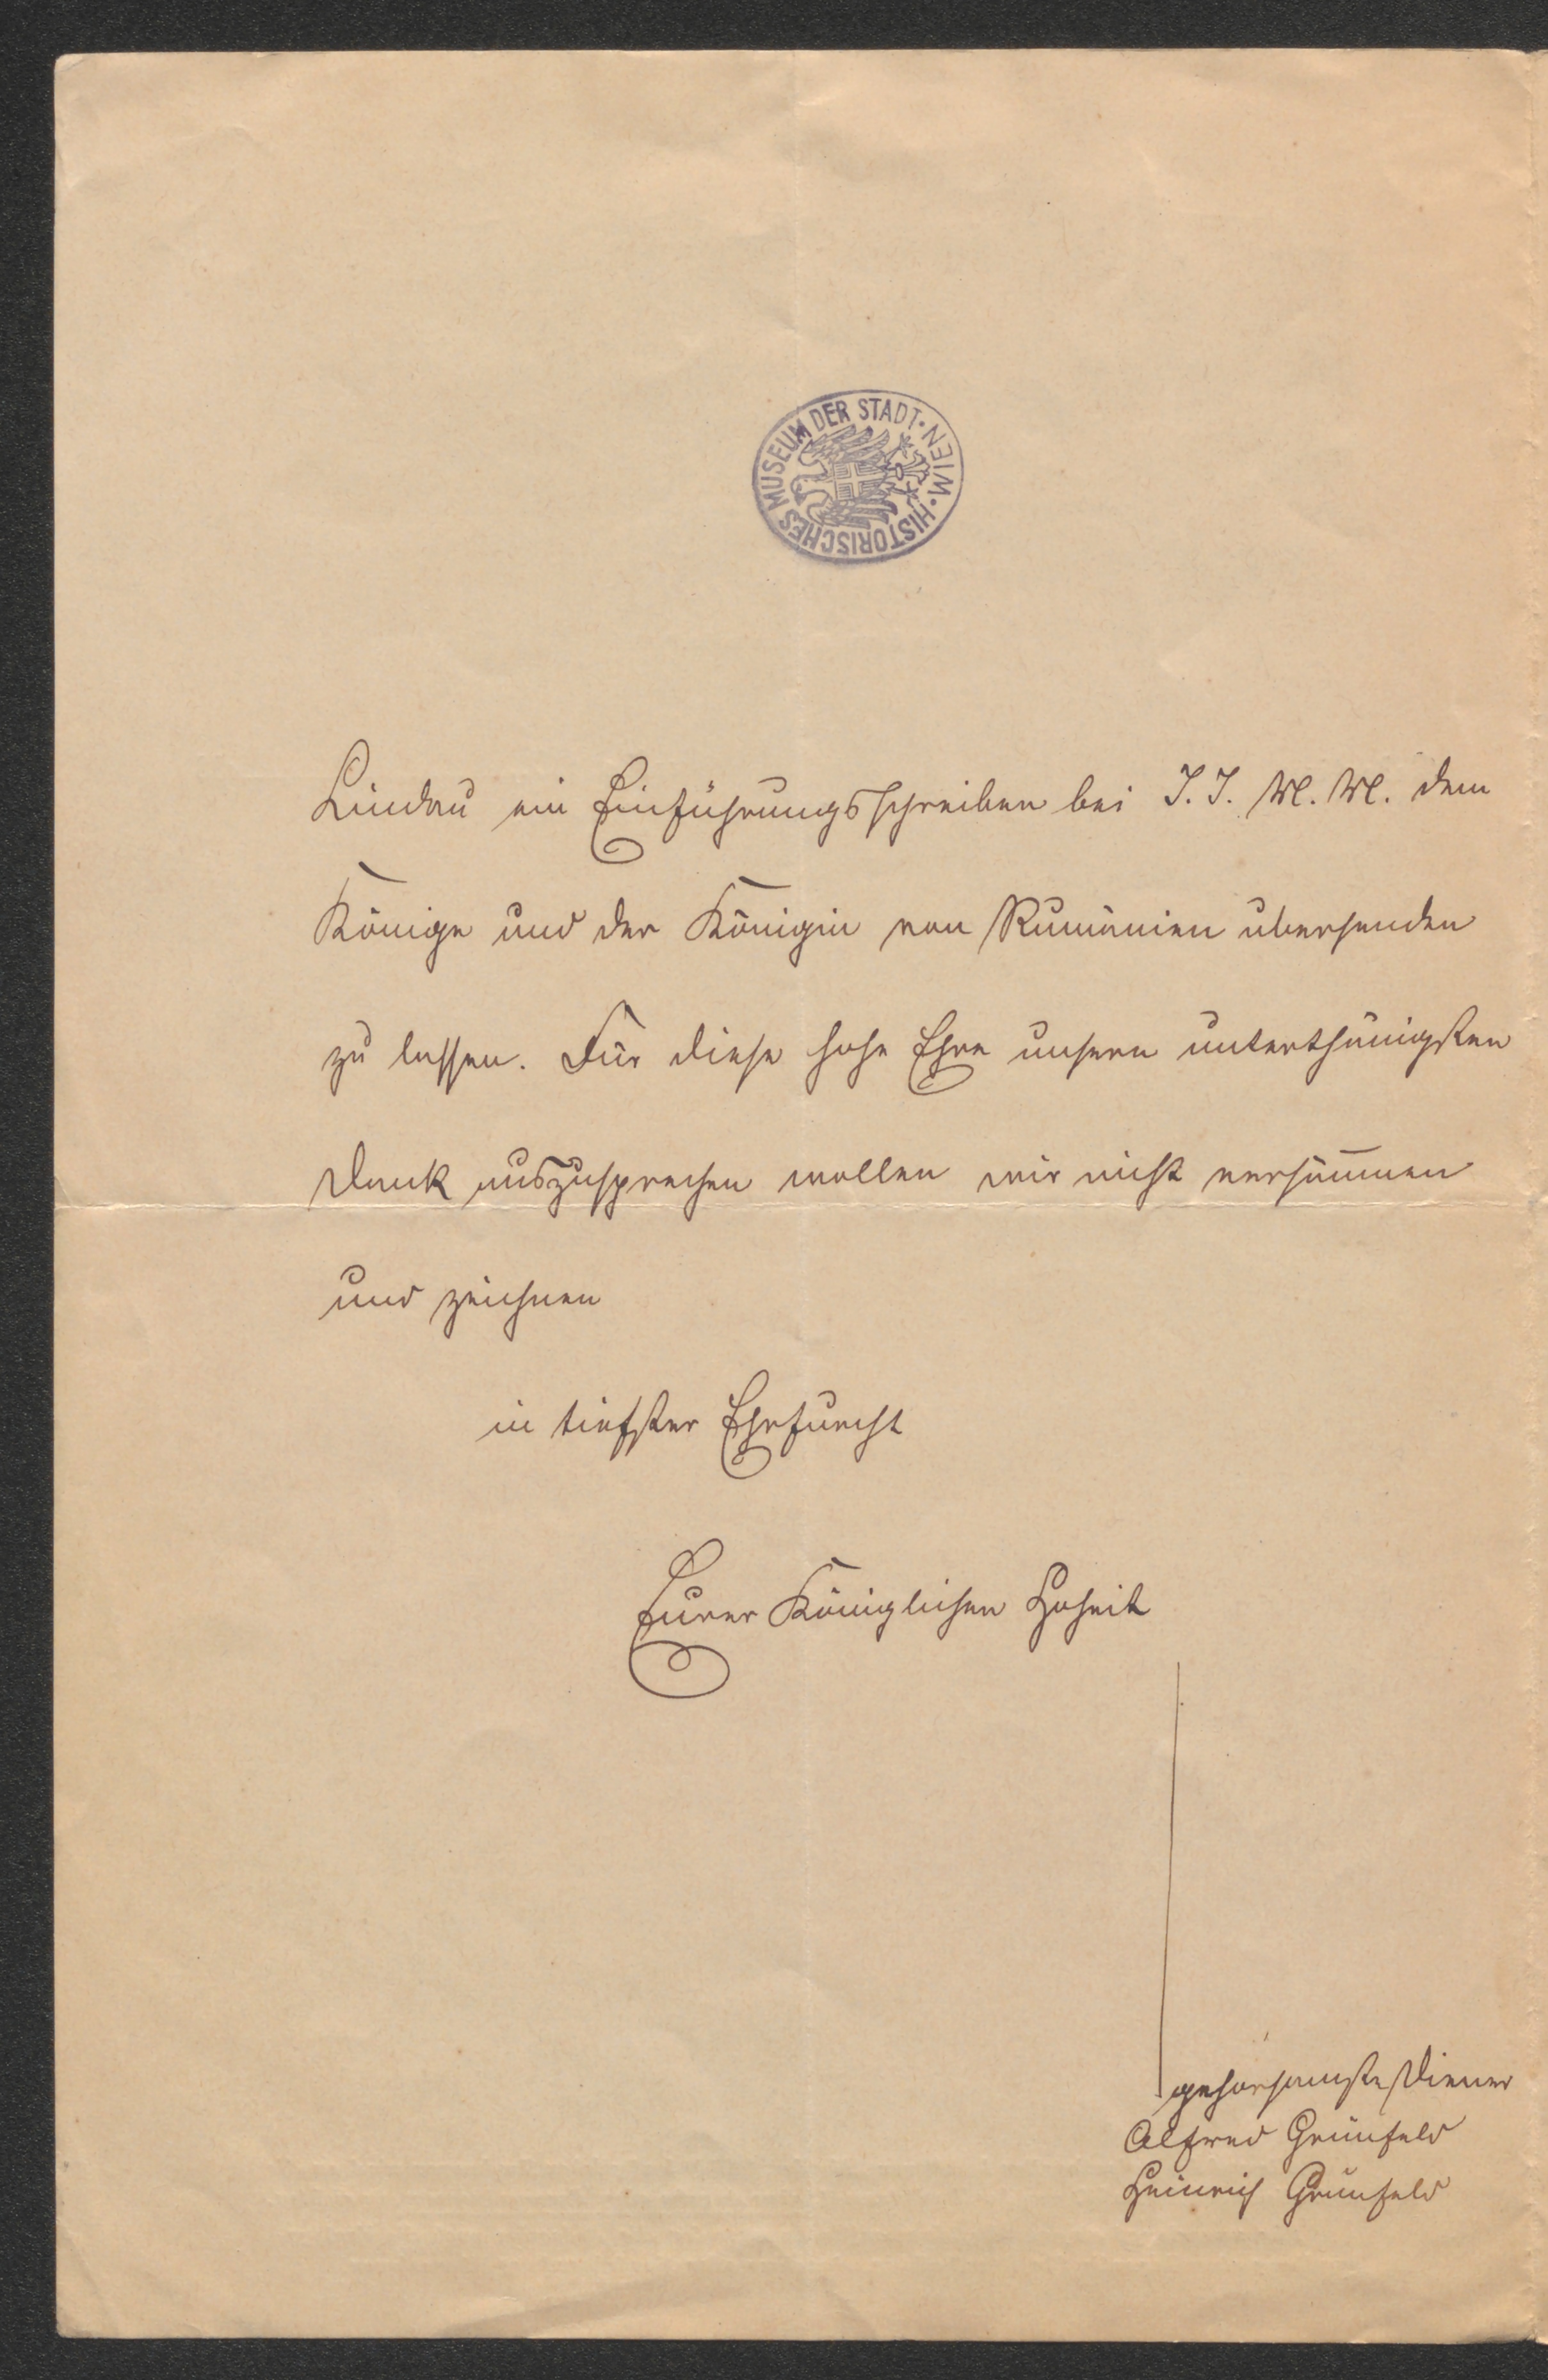 HISTORISCHES MUSEUM DER STADT · WIEN ·
Lindau ein Einführungsschreiben bei I. I. M. M. dem
Könige und der Königin von Rumänien übersenden
zu lassen. Für diese hohe Ehre unsern unterthänigsten
Dank auszusprechen wollen wir nicht versäumen
und zeichnen
in tiefster Ehrfurcht
Eurer Königlichen Hoheit
gehorsamste Diener
Alfred Grünfeld
Heinrich Grünfeld